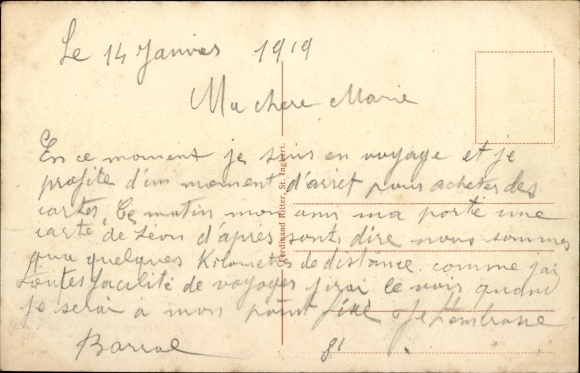 Le 14 Janvier 1919
Ma chere Marie
En ce moment je suis en voyage et je
profite d'un moment d'arret pour acheter des
cartes, Ce matin mon ami ma porté une
carte de Léon d'après sont dire nous sommes
qua quelques Kilometres de distance. comme j'ai
toutes facilité de voyager j'irai le voir quand
je serai a mon point fixe Je t'embrasse
Barral 81
Ferdinand Ritter, St. Ingbert.